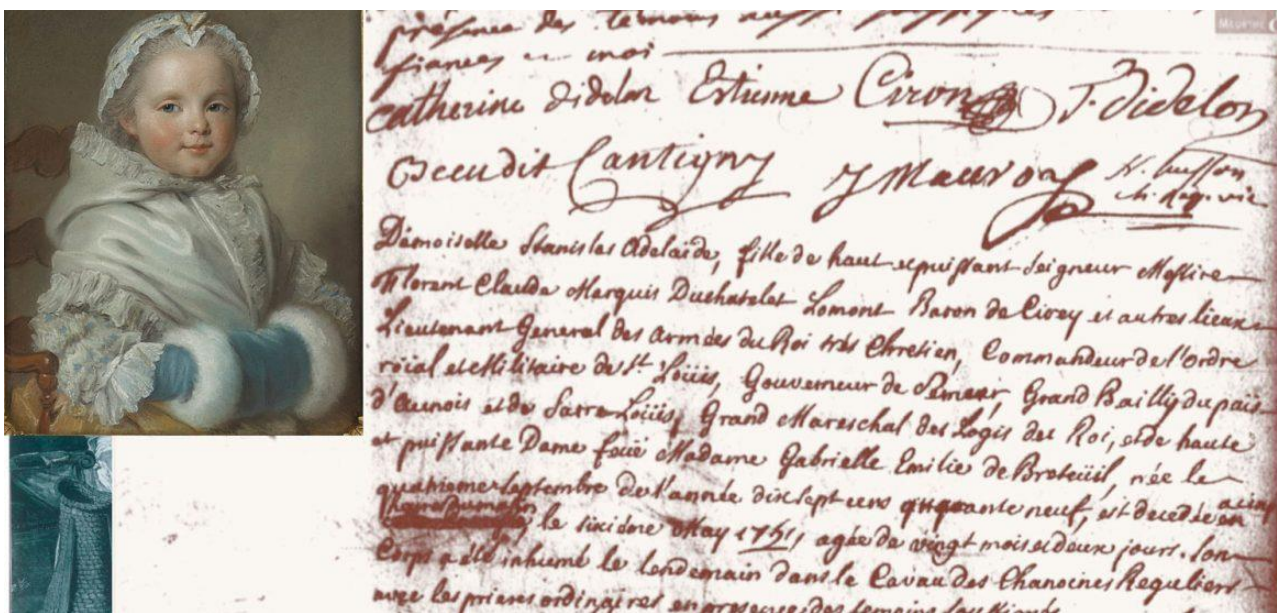 présence des témoins aussi soussignés
fiances et moi
MEURTHE
catherine didelon Estienne Ciron J. Didelon
Cantigny J Mauvoy h. husson
ch. reg. vic
Démoiselle Stanislas Adelaïde, fille de haut et puissant Seigneur Messire
Florent Claude Marquis Duchatelet Lomont Baron de Cirey et autres lieux
Lieutenant General des Armées du Roi très Chretien, Commandeur de l'Ordre
roïal et Militaire de St. Loüis, Gouverneur de Semeur, Grand Bailly du païs
d'Aunois et de Sarre Loüis, Grand Mareschal des Logis du Roi, et de haute
et puissante Dame feüe Madame Gabrielle Emilie de Breteüil, née le
quatrieme Septembre de l'année dix sept cens quarante neuf, est decedée en
le sixième May 1751, agée de vingt mois et deux jours. Son
Corps a été inhumé le lendemain dans le Caveau des Chanoines Reguliers
avec les prieres ordinaires en presence des temoins soussignés